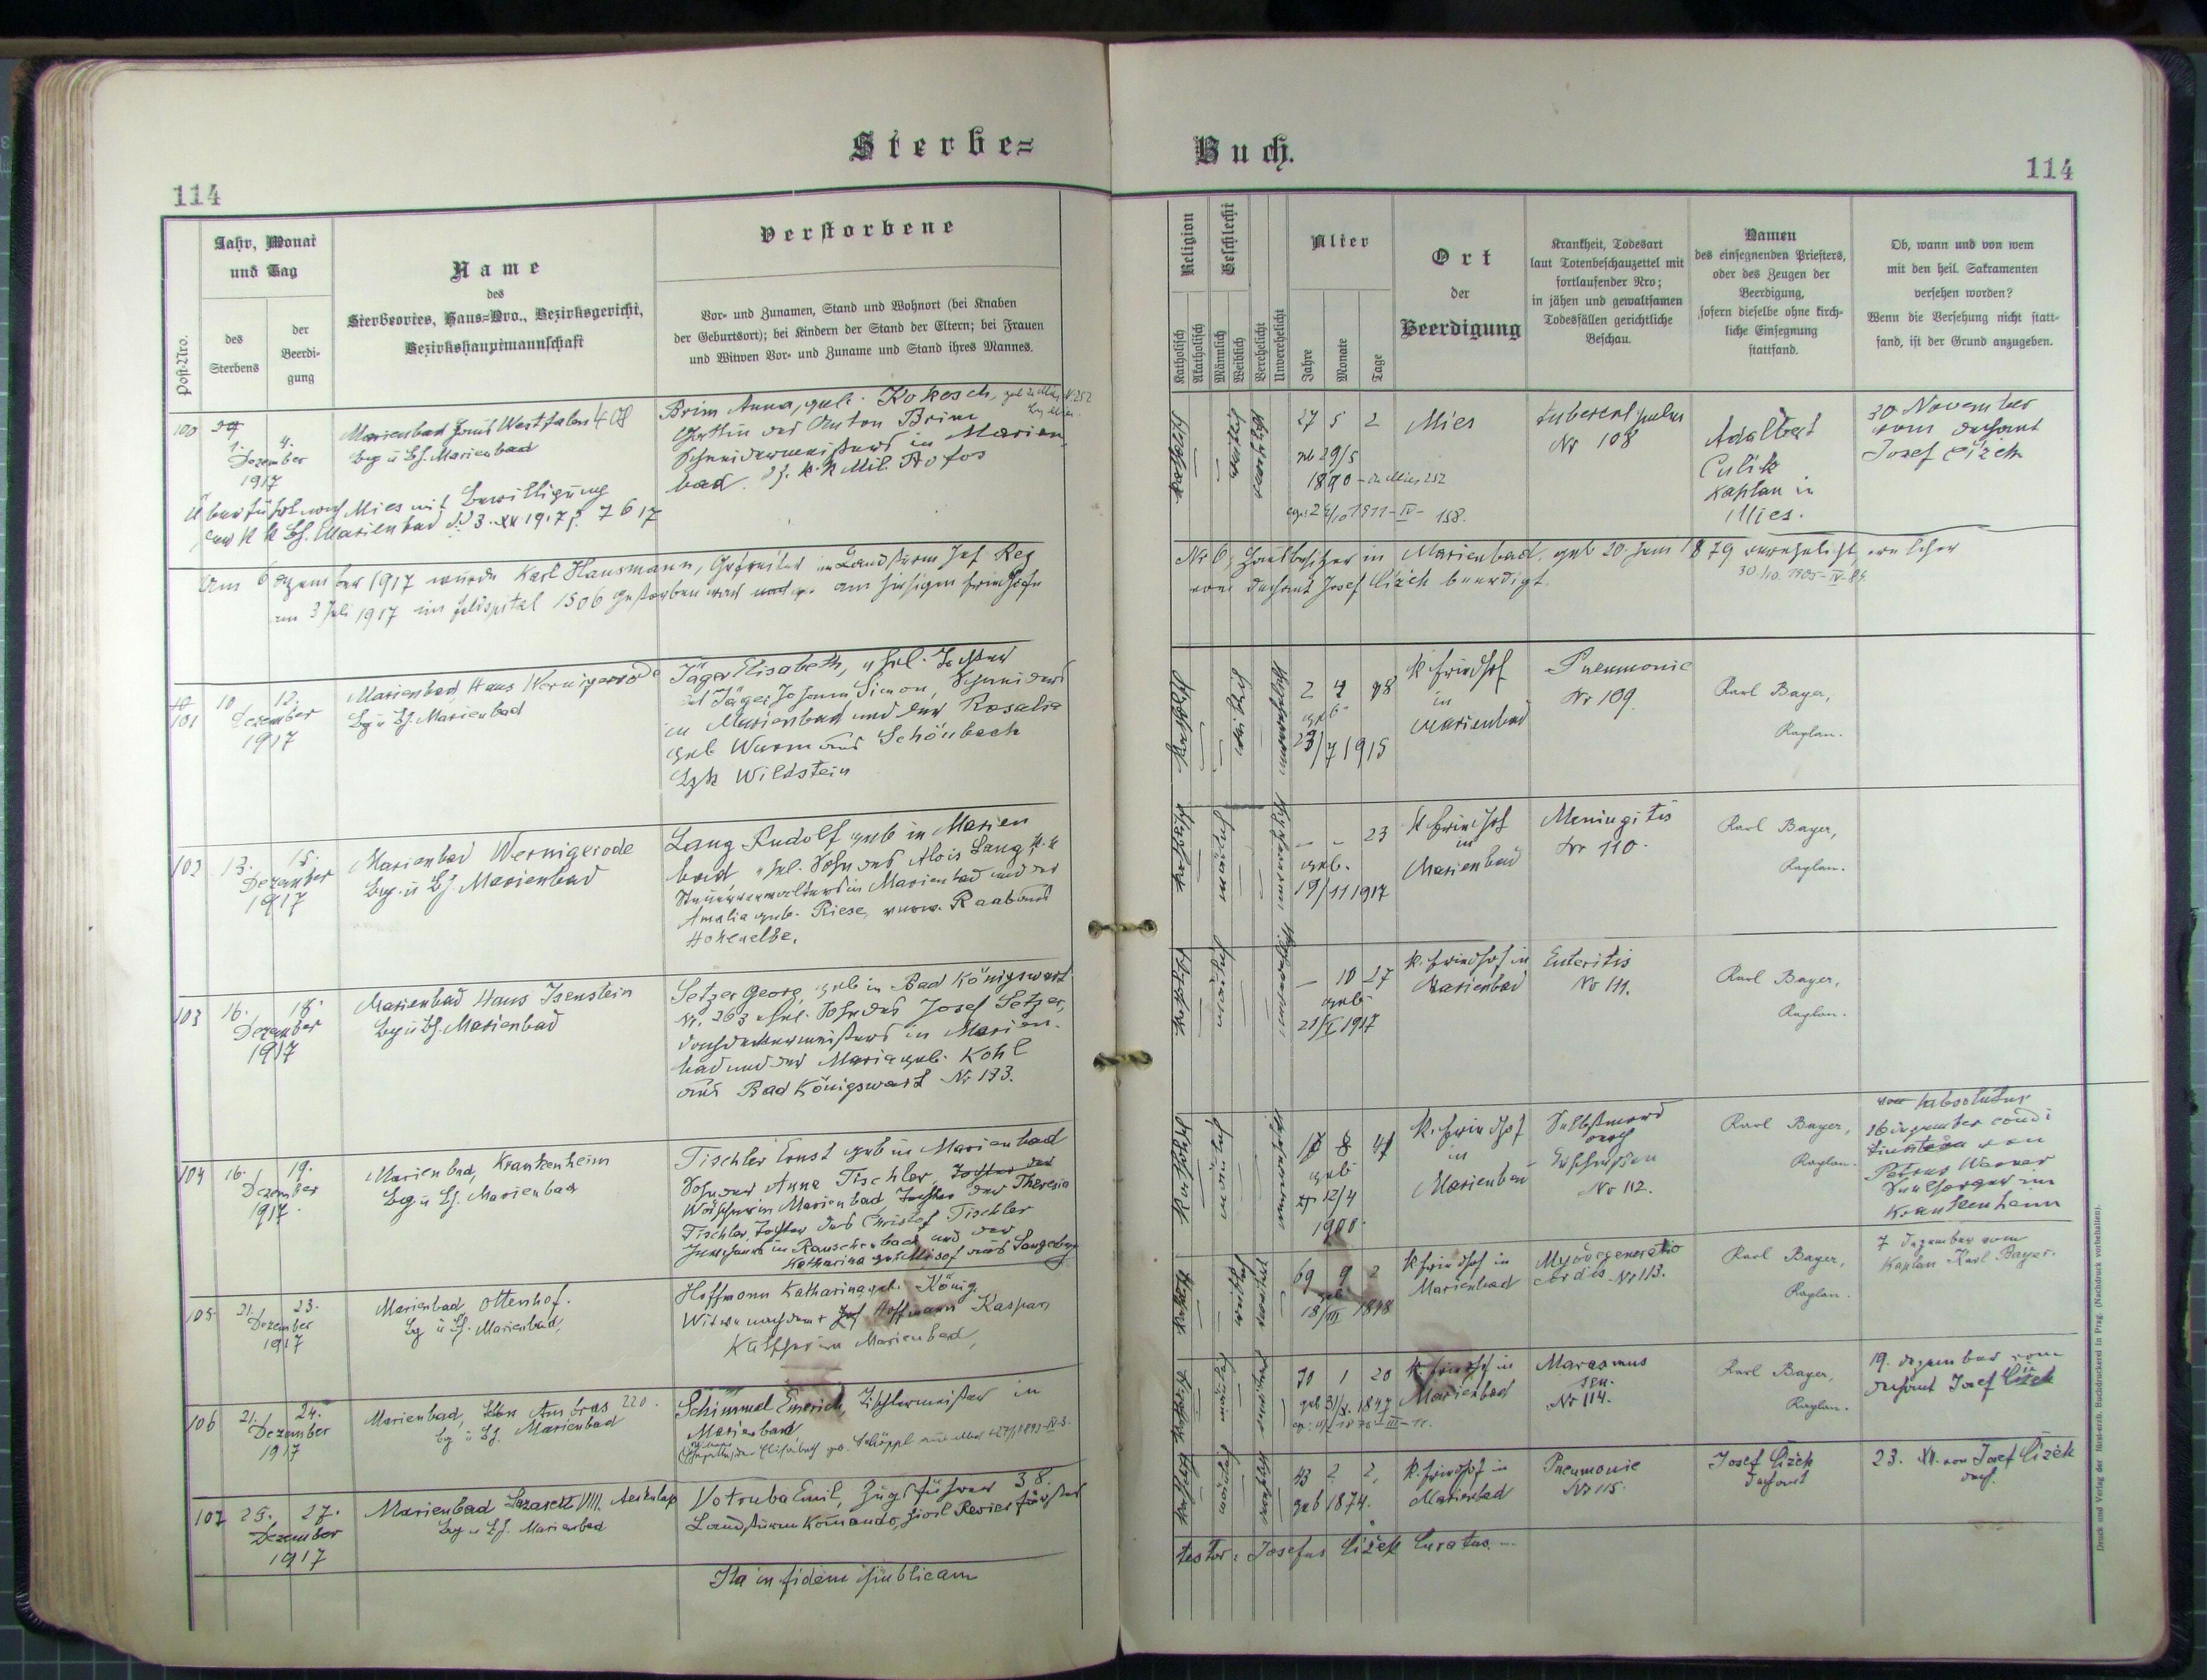 Sterbe=
Buch.
114
114
Post-Nro.
Jahr, Monat
und Tag
des
Sterbens
der
Beerdi-
gung
Name
des
Sterbeortes, Haus=Nro., Bezirksgericht,
Bezirkshauptmannschaft
Verstorbene
Vor- und Zunamen, Stand und Wohnort (bei Knaben
der Geburtsort); bei Kindern der Stand der Eltern; bei Frauen
und Witwen Vor- und Zuname und Stand ihres Mannes.
Religion
Katholisch
Akatholisch
Geschlecht
Männlich
Weiblich
Verehelicht
Unverehelicht
Alter
Jahre
Monate
Tage
Ort
der
Beerdigung
Krankheit, Todesart
laut Totenbeschauzettel mit
fortlaufender Nro;
in jähen und gewaltsamen
Todesfällen gerichtliche
Beschau.
Namen
des einsegnenden Priesters,
oder des Zeugen der
Beerdigung,
sofern dieselbe ohne kirch-
liche Einsegnung
stattfand.
Ob, wann und von wem
mit den heil. Sakramenten
versehen worden?
Wenn die Versehung nicht statt-
fand, ist der Grund anzugeben.
100
1. 4.
Dezember
1917
Marienbad Haus Westfalen
Bzg u Bh. Marienbad
Brim Anna, geb. Kokesch,
Gattin des Anton Brim
Schneidermeisters in Marien
bad.
Überführt nach Mies mit Bewilligung
der k k Bh. Marienbad 3. XII 1917 7617
27 5 2
geb 29/5
1890
Mies
Nr 108
Adalbert
Culik
Kaplan in
Mies.
30 November
vom Dechant
Josef Cizek
Am 6 Dezember 1917 wurde Karl Hausmann, Gefreiter im Landsturm Inf. Reg
am 3 Juli 1917 im Feldspital 1506 gestorben am hiesigen Friedhofe
Nr 6, Hausbesitzer in Marienbad, geb 20. Juni 1879 verehelicht, welcher
30/10. 1905-IV-84.
vom Dechant Josef Cizek beerdigt.
101
10 12.
Dezember
1917
Marienbad, Haus Wernigerode
Bg u Bh. Marienbad
Jäger Elisabeth, ehel. Tochter
des Jäger Johann Simon, Schneiders
in Marienbad und der Rosalia
geb Wurm aus Schönbach
Bzk Wildstein
2 4 18
geb.
23/7 1915
k. Friedhof
in
Marienbad
Pneumonie
Nr 109
Karl Bayer,
Kaplan.
102
13. 15.
Dezember
1917
Marienbad Wernigerode
Bg. u Bh. Marienbad
Lang Rudolf geb in Marien
bad ehel. Sohn des Alois Lang k.k
Steuerverwalters in Marienbad und der
Amalia geb. Riese, verw. Raab aus
Hohenelbe.
23
geb.
19/11 1917
k Friedhof
in
Marienbad
Meningitis
Nr 110.
Karl Bayer,
Kaplan.
103
16. 18.
Dezember
1917
Marienbad Haus Isenstein
Bg u Bh. Marienbad
Setzer Georg, geb in Bad Königswart
Nr. 263 ehel. Sohn des Josef Setzer,
Dachdeckermeisters in Marien-
bad und der Maria geb. Kohl
aus Bad Königswart Nr 133.
10 27
geb
1917
k. Friedhof in
Marienbad
Enteritis
No 111.
Karl Bayer,
Kaplan.
104
16. 19.
Dezember
1917
Marienbad, Krankenheim
Bg u Bh. Marienbad
Tischler Ernst geb in Marienbad
Sohn der Anna Tischler, Tochter der
Wäscherin in Marienbad, Tochter der Theresia
Tischler, Tochter des Christof Tischler
in Rauschenbach und der
Katharina
17 8 4
geb
12/4
1900
k. Friedhof
in
Marienbad
Selbstmord
durch
Erschießen
No 112.
Karl Bayer,
Kaplan.
Absolution
16 Dezember
von
Petrus Werner
Seelsorger im
Krankenheim
105
21. 23.
Dezember
1917
Marienbad, Ottenhof.
Bg u Bh. Marienbad,
Hoffmann Katharina geb. König,
Witwe nach dem + Josf Hoffmann Kaspar
in Marienbad,
69 9 2
geb
18/III 1848
k Friedhof in
Marienbad
Myodegeneratio
cordis Nr 113.
Karl Bayer,
Kaplan.
7 Dezember vom
Kaplan Karl Bayer.
106
21. 24.
Dezember
1917
Marienbad, Haus Ambras 220.
Bg u Bh. Marienbad
Schimmel Emerich, Tischlermeister in
Marienbad,
70 1 20
geb 31/X. 1847
k Friedhof in
Marienbad
Marasmus
sen.
Nr 114.
Karl Bayer,
Kaplan.
19. Dezember vom
Dechant Josef Cizek
107
25. 27.
Dezember
1917
Marienbad Lazarett VIII.
Bg u Bh. Marienbad
Votruba Emil, Zugsführer 38.
Landsturm Komando, zivil Revierförster
43 2 2
geb 1874.
k. Friedhof in
Marienbad
Pneumonie
Nr 115.
Josef Cizek
Dechant
23. XII. von Josef Cizek
Dech.
Ita in fidem publicam
testor: Josefus Cizek Curatus.
Druck und Verlag der fürst-erzb. Buchdruckerei in Prag. (Nachdruck vorbehalten).